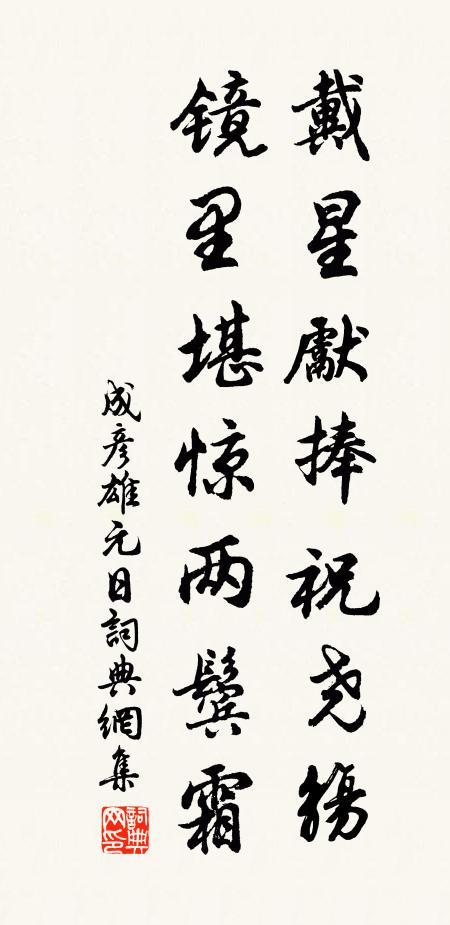 戴星獻捧祝尧觞
镜里堪惊两鬓霜
成彦雄元日詞典網集
詞典网印